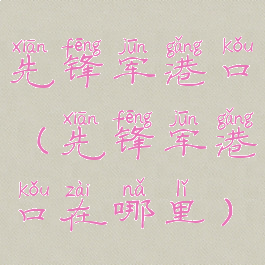 xiān fēng jūn gǎng kǒu
先锋军港口
xiān fēng jūn gǎng
（先锋军港
kǒu zài nǎ lǐ
口在哪里）